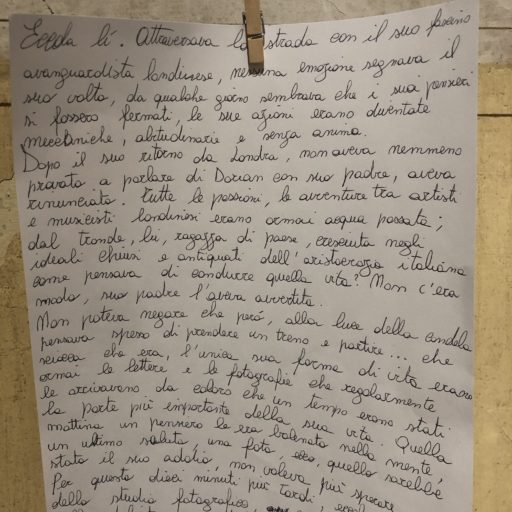 Eccola lì. Attraversava la strada con il suo fascino
avanguardista londinese, nessuna emozione segnava il
suo volto, da qualche giorno sembrava che i suoi pensieri
si fossero fermati, le sue azioni erano diventate
meccaniche, abitudinarie e senza anima.
Dopo il suo ritorno da Londra, non aveva nemmeno
provato a parlare di Dorian con suo padre, aveva
rinunciato. Tutte le passioni, le avventure tra artisti
e musicisti londinesi erano ormai acqua passata;
dal tronde, lei, ragazza di paese, cresciuta negli
ideali chiusi e antiquati dell'aristocrazia italiana
come pensava di condurre quella vita? Non c'era
modo, suo padre l'aveva avvertita.
Non poteva negare che però, alla luce della candela
pensava spesso di prendere un treno e partire... che
sciocca che era, l'unica sua forma di vita erano
ormai le lettere e le fotografie che regolarmente
le arrivavano da coloro che un tempo erano stati
la parte più importante della sua vita. Quella
mattina un pensiero le era balenato nella mente,
un ultimo saluto, una foto, quello sarebbe
stato il suo addio, non voleva più
Per questo dieci minuti più tardi,
dello studio fotografico